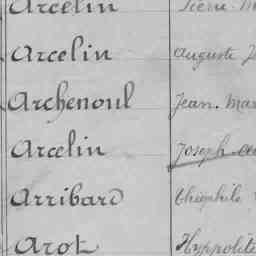 Arcelin Pierre
Arcelin Auguste
Archenoul Jean. Mar
Arcelin Joseph
Arribard Théophile
Arot Hyppolite